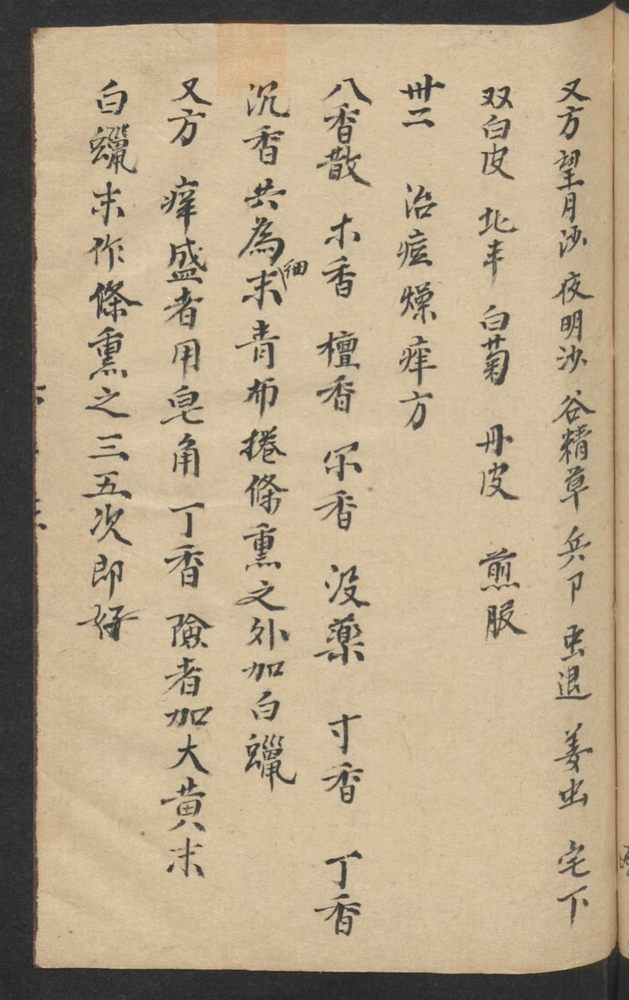 又方 望月沙 夜明沙 谷精草 兵卩 虫退 姜虫 宅下
双白皮 北丰 白菊 丹皮 煎服
卅二 治痘燥痒方
八香散 木香 檀香 穼香 没藥 寸香 丁香
沉香共為細末青布捲條熏之外加白蠟
又方 痒盛者用皂角 丁香 險者加大黄末
白蠟末作條熏之三五次即好